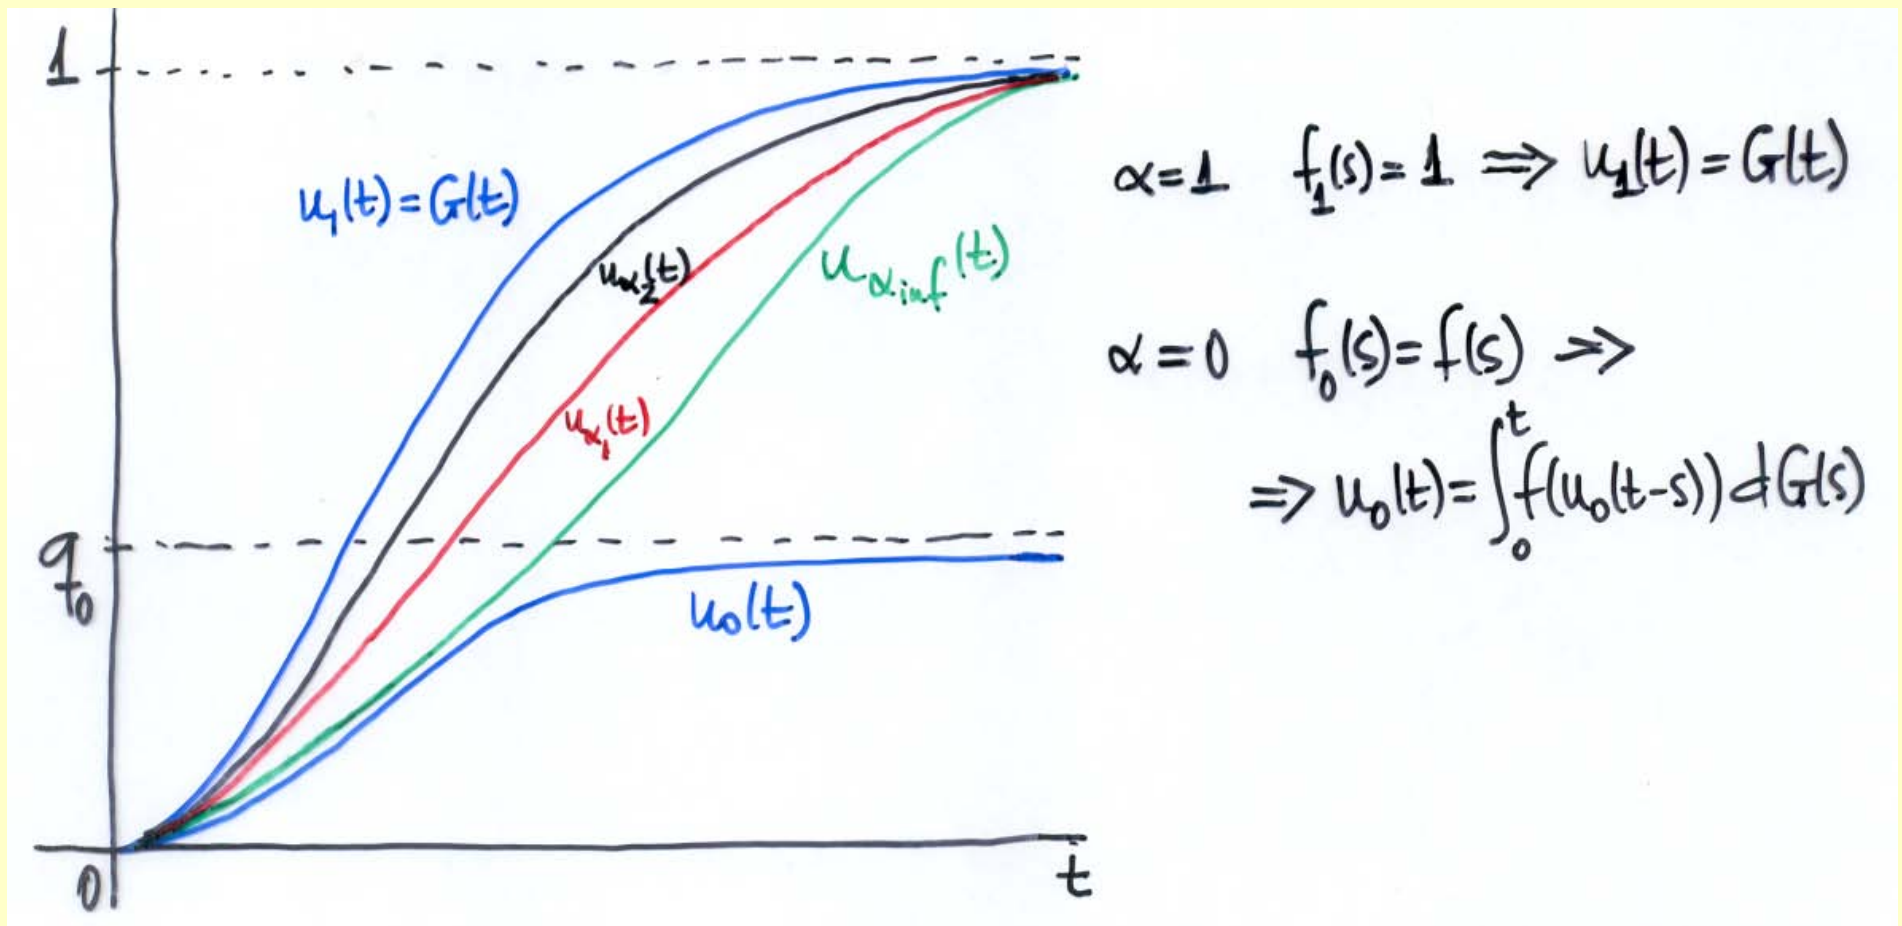 1
u₁(t) = G(t)
u_α₂(t)
u_α_inf(t)
u_α₁(t)
q₀
u₀(t)
0
t
α=1 f₁(s)=1 ⇒ u₁(t)=G(t)
α=0 f₀(s)=f(s) ⇒
⇒ u₀(t)=∫₀ᵗ f(u₀(t-s)) dG(s)